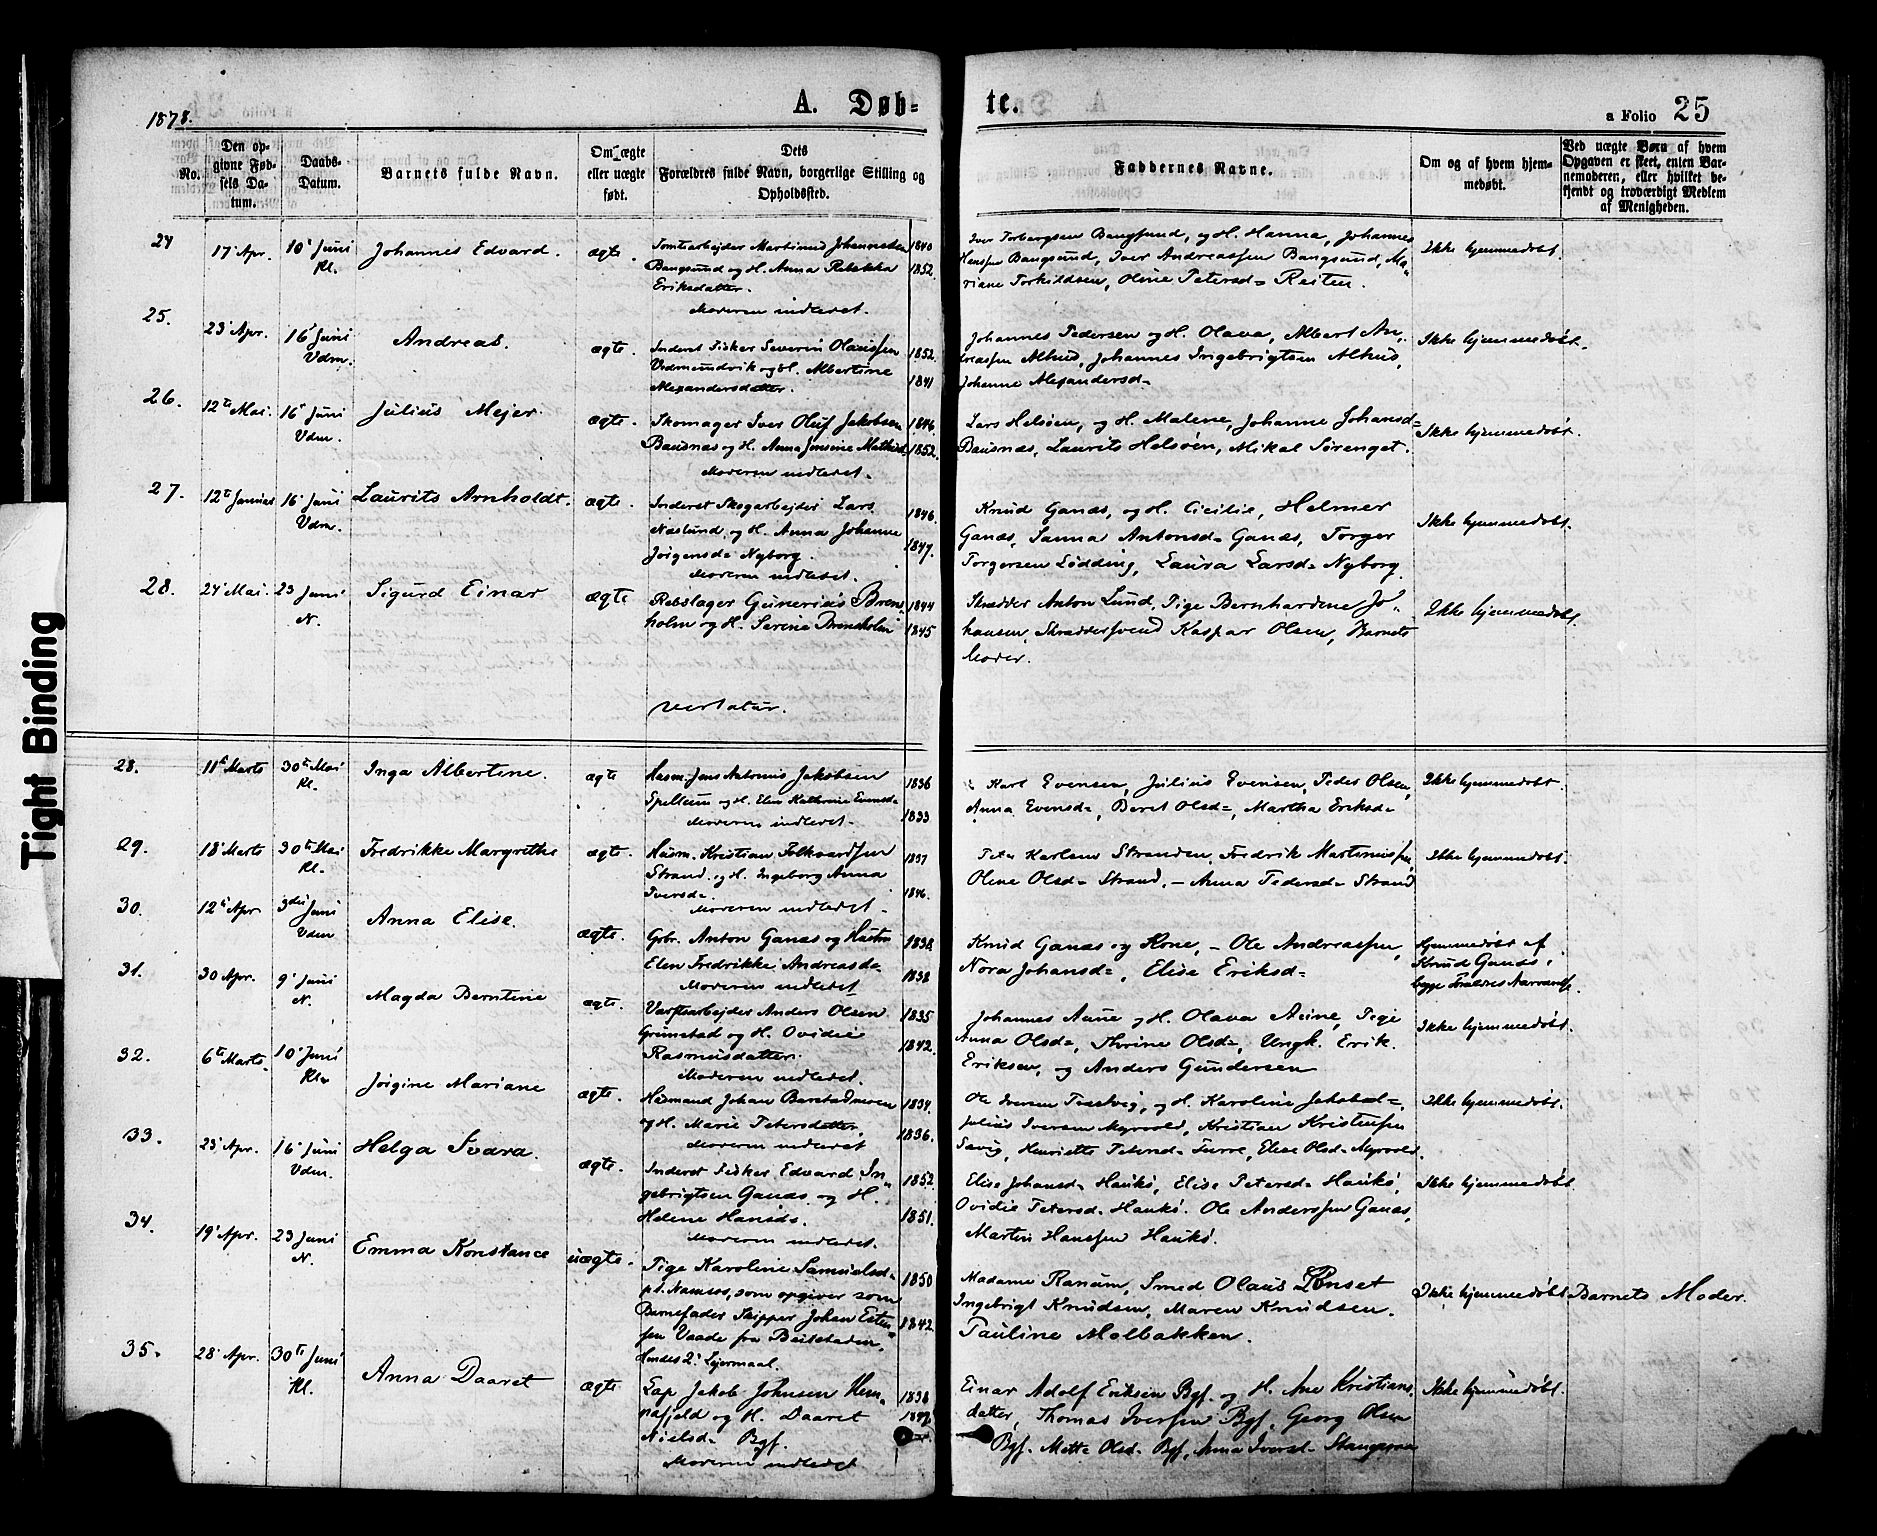 1878.
A. Døb=
te.
a Folio 25
No.
Den op-
givne Fød-
sels Da-
tum.
Daabs-
Datum.
Barnets fulde Navn.
Om ægte
eller uægte
født.
Dets
Forældres fulde Navn, borgerlige Stilling og
Opholdssted.
Faddernes Navne.
Om og af hvem hjem-
medøbt.
Ved uægte Børn af hvem
Opgaven er skeet, enten Bar-
nemoderen, eller hvilket be-
kjendt og troværdigt Medlem
af Menigheden.
24
17 Apr.
10 Juni
Kl.
Johannes Edvard.
ægte.
Tomtearbejder Martinus Johannessen 1840
Bangsund og H. Anna Rebekka 1852.
Eriksdatter.
Moderen indledet.
Iver Torbergsen Bangsund, og H. Hanna, Johannes
Hanssen Bangsund, Iver Andreassen Bangsund, Ma-
riane Torkildsen, Oline Petersd= Reiten.
Ikke hjemmedøbt.
25.
23 Apr.
16 Juni
Vdm.
Andreas.
ægte.
Inderst Fisker Severin Olaussen 1852.
Vedmundvik og H. Albertine 1841
Alexandersdatter.
Johannes Pedersen og H. Olava, Albert An-
dreassen Alhus, Johannes Ingebrigtsen Alhus,
Johanne Alexandersd=
Ikke hjemmedøbt.
26.
12te Mai.
16 Juni
Vdm.
Julius Mejer.
ægte.
Skomager Iver Oluf Jakobsen 1846.
Bausnæs og H. Anna Jensine Mathisd. 1852.
Moderen indledet.
Lars Helsøen, og H. Malene, Johanne Johansd=
Bausnæs, Laurits Helsøen, Mikal Sørenget.
Ikke hjemmedøbt.
27.
12te Januar
16 Juni
Vdm.
Laurits Arnholdt.
ægte.
Inderst Skogarbejder Lars 1846.
Næslund og H. Anna Johanne 1847.
Jørgensd= Nyborg.
Moderen indledet.
Knud Ganæs, og H. Cicilie, Helmer
Ganæs, Sanna Antonsd= Ganæs, Torger
Torgersen Lødding, Laura Larsd= Nyborg.
Ikke hjemmedøbt.
28.
24 Mai.
23 Juni
N.
Sigurd Einar
ægte
Rebslager Gunerius Brens- 1844
holm og H. Serine Brensholm 1845
Skrædder Anton Lund, Pige Bernhardine Jo-
hansen, Skræddersvend Kaspar Olsen, Barnets
Moder.
Ikke hjemmedøbt.
vertatur.
28.
11te Marts
30te Mai
Kl.
Inga Albertine.
ægte
Husm. Jens Antonius Jakobsen 1836
Spillum og H. Elen Kathrine Evensd= 1833
Moderen indledet.
Karl Evensen, Julius Evensen, Peder Olsen,
Anna Evensd=, Beret Olsd=, Martha Eriksd=
Ikke hjemmedøbt.
29.
18 Marts
30te Mai
Kl.
Fredrikke Margrethe
ægte.
Husm. Kristian Folkvardsen 1837
Strand og H. Ingeborg Anna 1846.
Iversd=
Moderen indledet.
Peter Karlsen Stranden, Fredrik Martinussen,
Oline Olsd= Strand. – Anna Pedersd= Strand
Ikke hjemmedøbt.
30.
12te Apr
3die Juni
Vdm
Anna Elise.
ægte.
Gbr. Anton Ganæs og Hustru 1838
Elen Fredrikke Andreasd= 1838
Moderen indledet
Knud Ganæs og Kone, – Ole Andreassen,
Nora Johansd=, Elise Eriksd=
Hjemmedøbt af
Knud Ganæs i
begge Forældres Nærværelse.
31.
30 Apr.
9 Juni
N.
Magda Berntine
ægte.
Værftsarbejder Anders Olsen 1835
Grimstad og H. Ovidie 1842.
Rasmusdatter.
Moderen indledet.
Johannes Aune og H. Olava Aune, Pige
Anna Olsd=, Thrine Olsd=, Ungk. Erik
Eriksen, og Anders Gundersen
Ikke hjemmedøbt.
32.
6te Marts
10 Juni
Kl.
Jørgine Mariane
ægte.
Husmand Johan Barstadmoen 1834.
og H. Marie Petersdatter, 1836.
Moderen indledet
Ole Iversen Tvedvig, og H. Karoline Jakobsd=,
Julius Iversen Myrvold, Kristian Kristensen
Sævig, Henriette Petersd= Furre, Elise Olsd= Myrvold.
Ikke hjemmedøbt.
33.
23 Apr.
16 Juni
Vdm.
Helga Svara.
ægte.
Inderst Fisker Edvard In- 1852
gebrigtsen Ganæs og H. 1851.
Helene Hansd=.
Moderen indledet.
Elise Johansd= Haukø, Elise Petersd= Haukø,
Ovidie Petersd= Haukø. Ole Anderssen Ganæs,
Martin Hanssen Haukø.
Ikke hjemmedøbt.
34.
19 Apr.
23 Juni
N.
Emma Konstance
uægte.
Pige Karoline Samuelsd= 1850
pt. Namsos, som opgiver som
Barnefader Skipper Johan Esten- 1842
sen Vaade fra Beitstaden,
Hendes 2. Lejermaal.
Madame Ranum, Smed Olaus Lønset
Ingebrigt Knudsen, Maren Knudsen.
Pauline Molbakken.
Ikke hjemmedøbt
Barnets Moder.
35.
28 Apr.
30te Juni
Kl.
Anna Daaret
ægte
Lap Jakob Johnsen Hem- 1838
nafjeld og H. Daaret 1842
Nielsd= Bgf.
Moderen indledet
Einar Adolf Eriksen Bgf. og H. Ane Kristians-
datter, Thomas Iversen Bgf, Georg Olsen
Bgf. Mette Olsd= Bgf, Anna Iversd=
Ikke hjemmedøbt.
Tight Binding